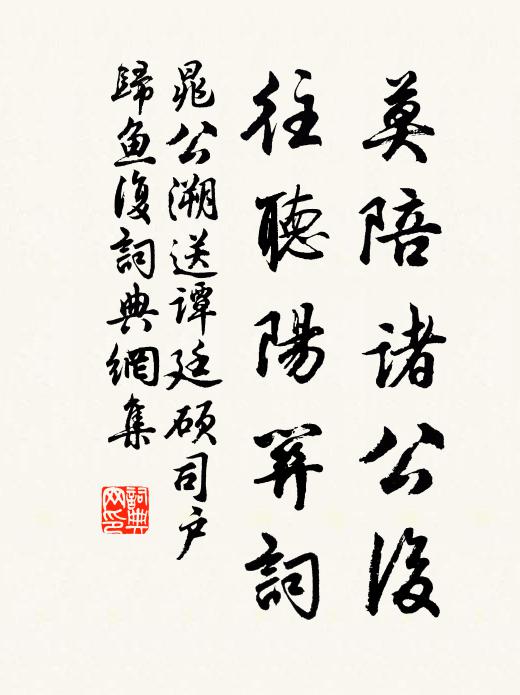 莫陪諸公後
往聽陽關詞
晁公溯送譚廷碩司户
歸魚復詞典網集
詞典
网印